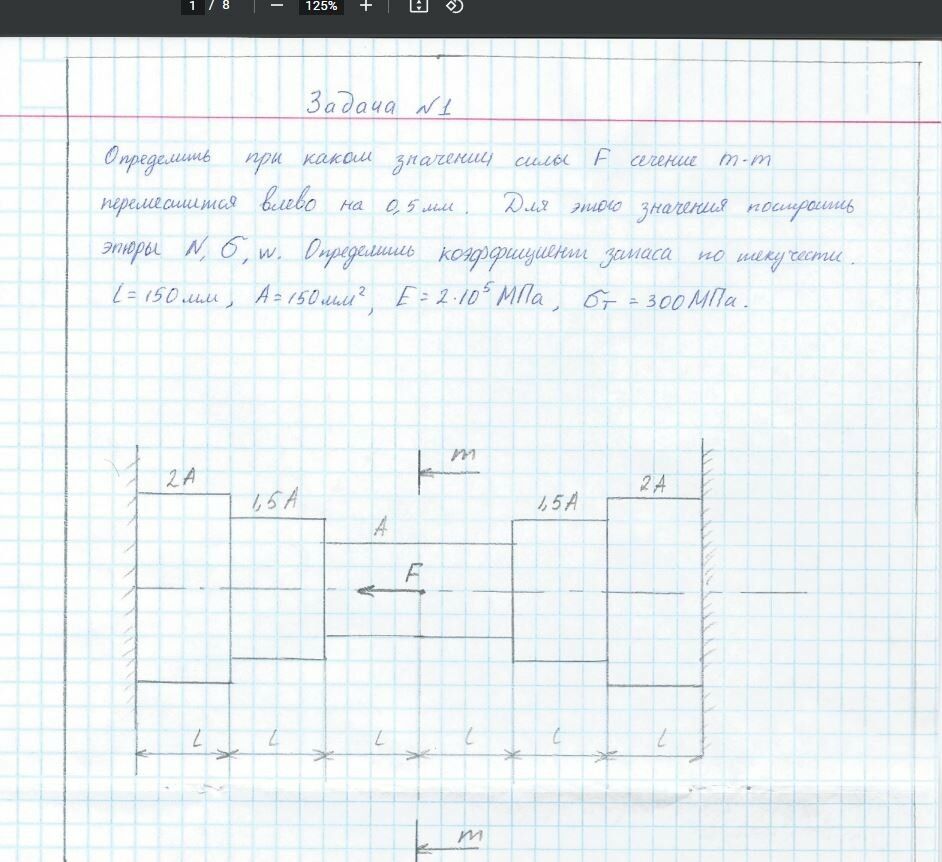 1 / 8 125%
Задача N1
Определить при каком значении силы F сечение m-m
переместится влево на 0,5 мм. Для этого значения построить
эпюры N, σ, w. Определить коэффициент запаса по текучести.
L = 150 мм, A = 150 мм², E = 2·10⁵ МПа, σт = 300 МПа.
m
2A 1,5A A 1,5A 2A
F
L L L L L L
m